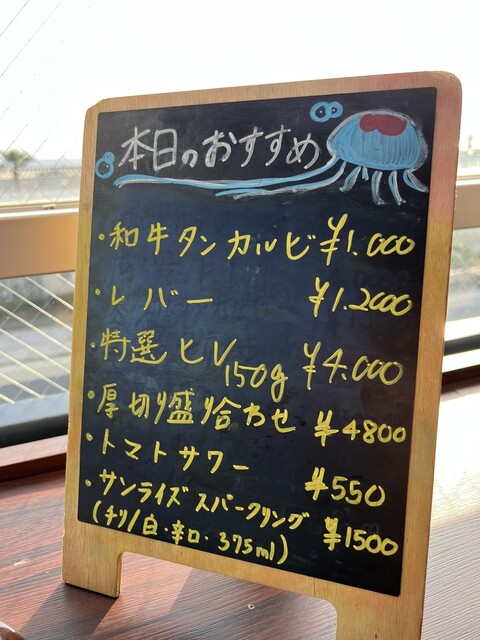 本日のおすすめ
・和牛タンカルビ ¥1.000
・レバー ¥1.2000
・特選ヒレ150g ¥4.000
・厚切り盛り合わせ ¥4800
・トマトサワー ¥550
・サンライズスパークリング
(チリ/白・辛口・375ml) ¥1500